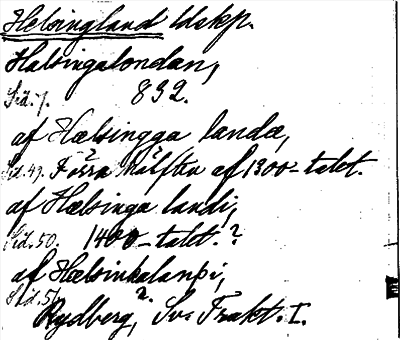 Helsingland ldskp.
Halsingalondan,
Sid. 7. 832.
af Hælsingga landæ,
Sid. 49. Förra hälften af 1300-talet.
af Hælsinga landi,
Sid. 50. 1400-talet.?
af Hælsinkalanþi,
Sid. 51. ?
Rydberg, Sv. Trakt. I.